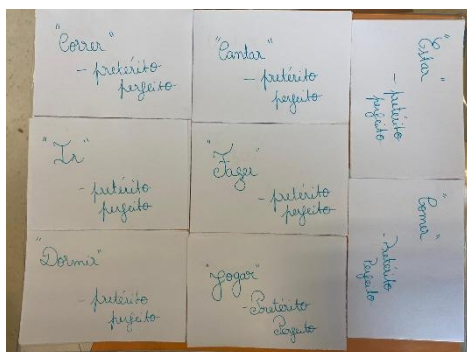 "Correr"
- pretérito
perfeito
"Cantar"
- pretérito
perfeito
"Estar"
- pretérito
perfeito
"Ir"
- pretérito
perfeito
"Fazer"
- pretérito
perfeito
"Comer"
- Pretérito
Perfeito
"Dormir"
- pretérito
perfeito
"Jogar"
- Pretérito
Perfeito